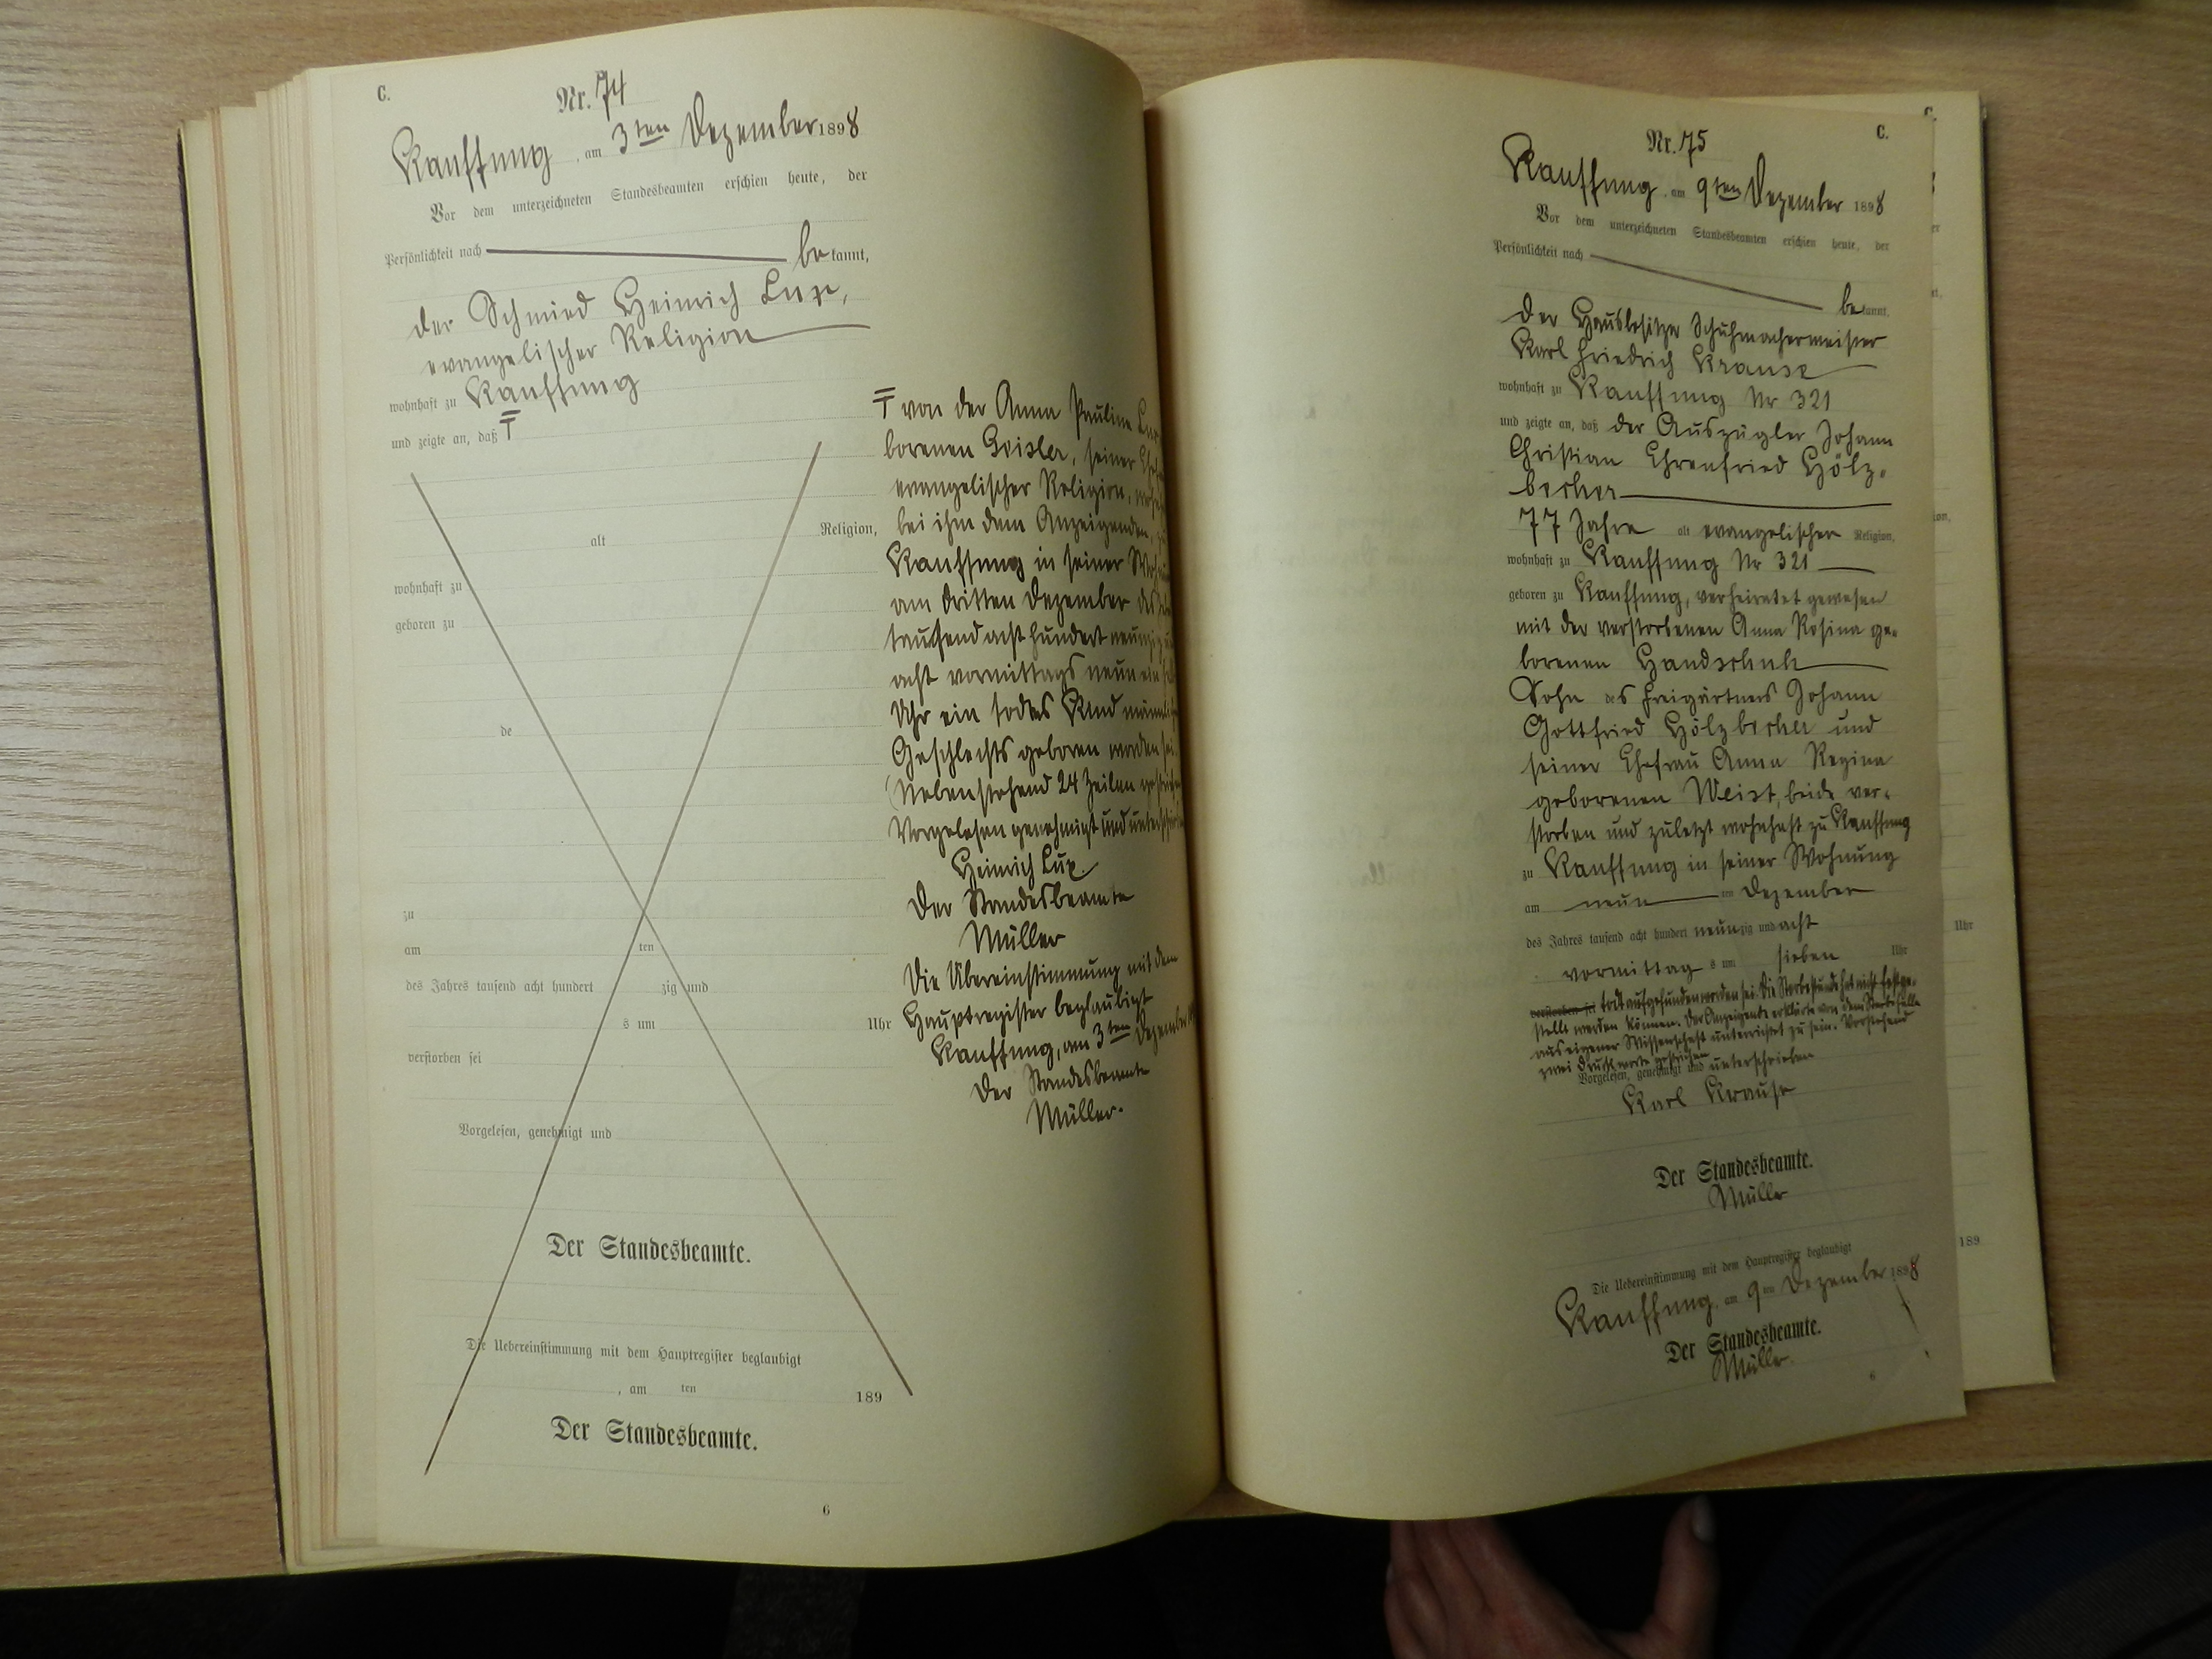 C.
Nr. 74
Kauffung, am 3ten Dezember 1898
Vor dem unterzeichneten Standesbeamten erschien heute, der
Persönlichkeit nach be kannt,
der Schmied Heinrich Lux,
evangelischer Religion
wohnhaft zu Kauffung
und zeigte an, daß ₸
alt Religion,
wohnhaft zu
geboren zu
de
zu
am ten
des Jahres tausend acht hundert zig und
s um Uhr
verstorben sei
Vorgelesen, genehmigt und
Der Standesbeamte.
Die Uebereinstimmung mit dem Hauptregister beglaubigt
, am ten 189
Der Standesbeamte.
6
₸ von der Anna Pauline
borenen Geisler, seiner
evangelischer Religion,
bei ihm dem Anzeigenden,
Kauffung in seiner
am dritten Dezember des
tausend acht hundert neunzig
acht vormittags neun ein
Uhr ein todes Kind
Geschlechts geboren worden sei
(Nebenstehend 24 Zeilen
Vorgelesen genehmigt und
Heinrich Lux.
Der Standesbeamte
Müller
Die Übereinstimmung mit dem
Hauptregister beglaubigt
Kauffung, am 3ten Dezember
Der Standesbeamte
Müller.
C.
Nr. 75
Kauffung, am 9ten Dezember 1898
Vor dem unterzeichneten Standesbeamten erschien heute, der
Persönlichkeit nach be kannt,
der Hausbesitzer Schuhmachermeister
Karl Friedrich Krause
wohnhaft zu Kauffung Nr 321
und zeigte an, daß der Auszügler Johann
Christian Ehrenfried Hölz-
becher
77 Jahre alt evangelischer Religion,
wohnhaft zu Kauffung Nr 321
geboren zu Kauffung, verheiratet gewesen
mit der verstorbenen Anna Rosina ge-
borenen Handschuh
Sohn des Freigärtners Johann
Gottfried Hölzbecher und
seiner Ehefrau Anna Regina
geborenen Weist, beide ver-
storben und zuletzt wohnhaft zu Kauffung
zu Kauffung in seiner Wohnung
am neun ten Dezember
des Jahres tausend acht hundert neunzig und acht
vormittags um sieben Uhr
verstorben sei todt aufgefunden worden sei. Die Sterbestunde hat nicht festge-
stellt werden können. Der Anzeigende erklärte von dem Sterbefalle
aus eigener Wissenschaft unterrichtet zu sein. Vorstehend
zwei Druckworte gestrichen
Vorgelesen, genehmigt und unterschrieben
Karl Krause
Der Standesbeamte.
Müller
Die Uebereinstimmung mit dem Hauptregister beglaubigt
Kauffung, am 9ten Dezember 1898
Der Standesbeamte.
Müller.
6
Uhr
189